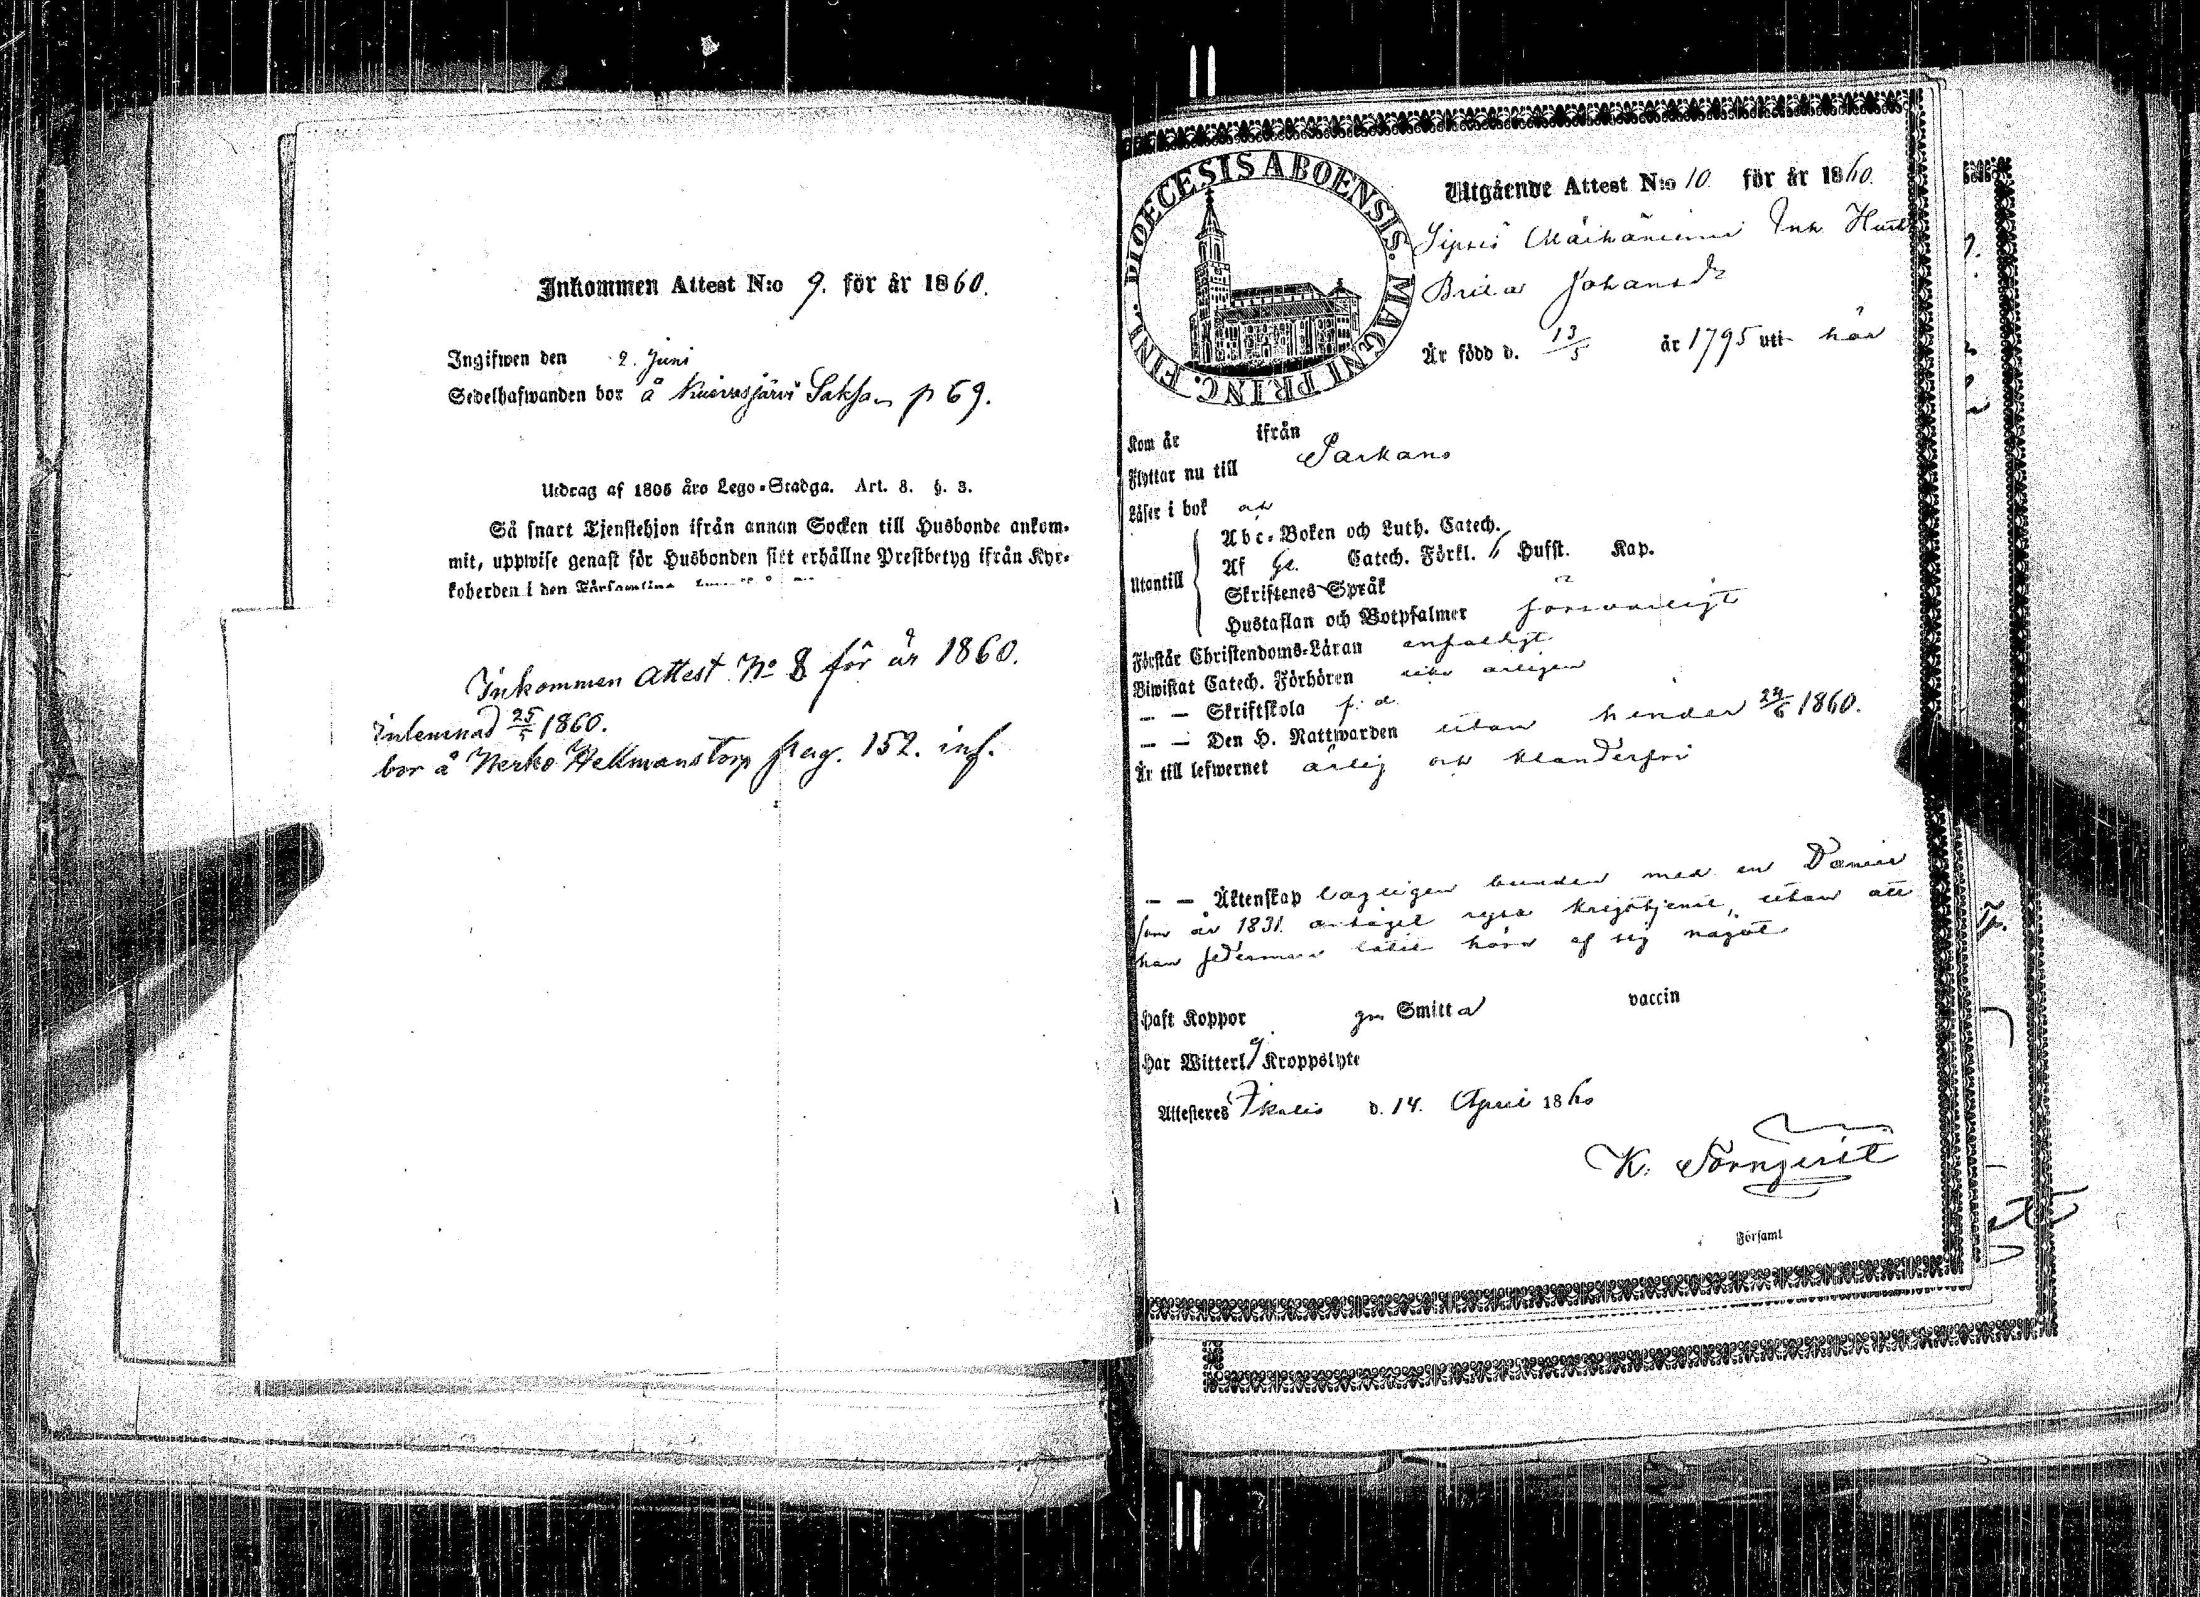 Inkommen Attest N:o 9. för år 1860.
Ingifwen den 2. Juni
Sedelhafwanden bor å Kuivasjärvi Saksa p 69.
Utdrag af 1805 åro Lego-Stadga. Art. 8. §. 3.
Så snart Tjenstehjon ifrån annan Socken till Husbonde ankom-
mit, uppwise genast för Husbonden sitt erhållne Prestbetyg ifrån Kyr-
koherden i den Församling
Inkommen Attest No 8 för år 1860.
Inlemnad 25/5 1860.
bor å Werko Hellmanstorp pag. 152. inf.
DIOECESIS ABOENSIS. MAGNI PRINC. FINL.
Utgående Attest N:o 10. för år 1860.
Sipsiö Inh. Hust
Brita Johansdr
Är född d. 13/5 år 1795 uti här
Kom år ifrån
Flyttar nu till Parkano
Läser i bok
Abc-Boken och Luth. Catech.
Utantill
Af Catech. Förkl. 6 Husst. Kap.
Skriftenes Språk
Hustaflan och Botpsalmer försvarligt
Förstår Christendoms-Läran enfaldigt
Biwistat Catech. Förhören årligen
— — Skriftskola
— — Den H. Nattwarden utan hinder 24/6 1860.
Är till lefwernet ärlig och klanderfri
— — Äktenskap lagligen bunden med en
som år 1831 antaget ryss krigstjenst, utan att
han sedermera låtit höra af sig något
Haft Koppor gm Smitta vaccin
Har Witterl. Kroppslyte
Attesteras Ikalis d. 14. April 1860
K. Törnqvist
Församl